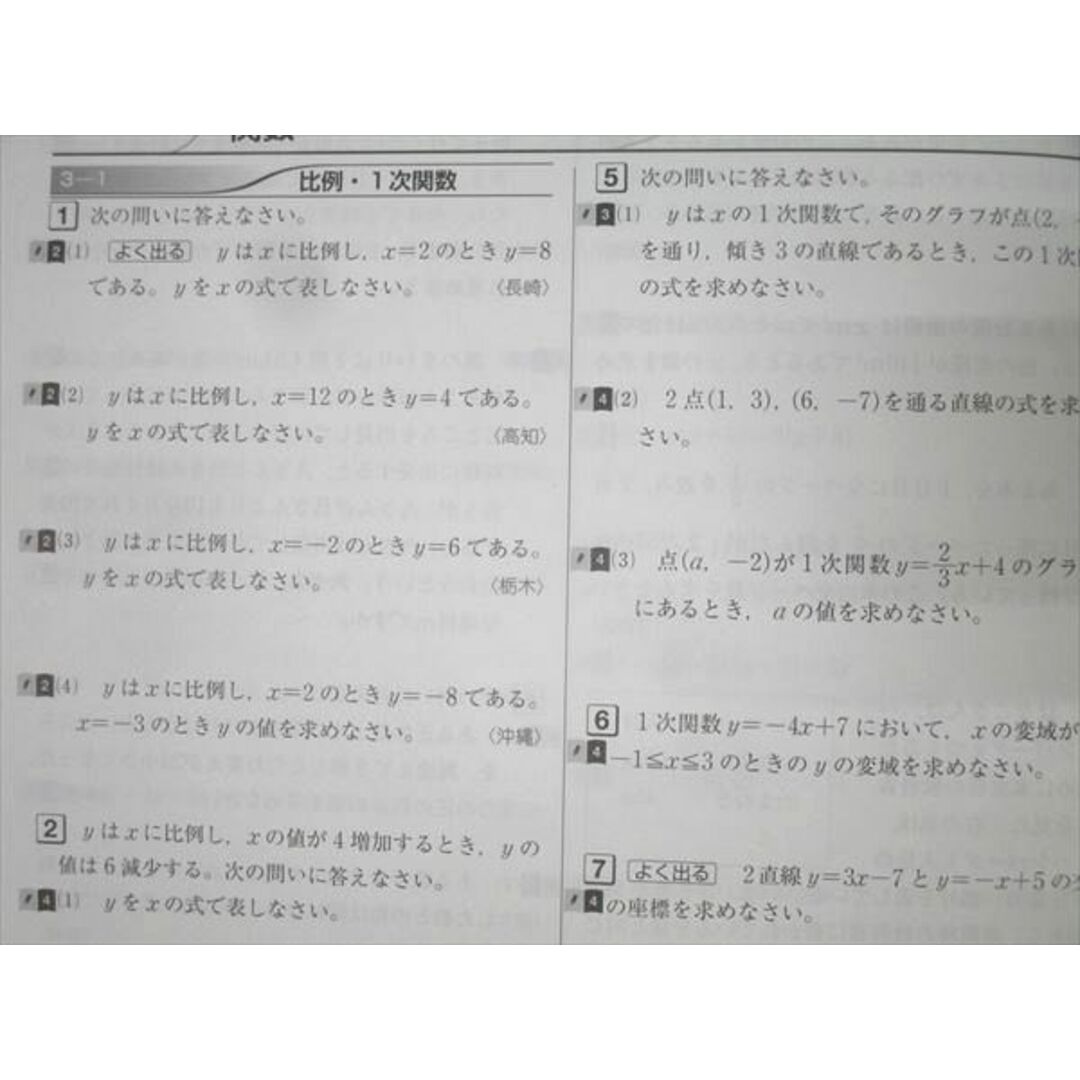 関数
3-1 比例・1次関数
1 次の問いに答えなさい。
2 (1) よく出る yはxに比例し，x=2のときy=8
である。yをxの式で表しなさい。 〈長崎〉
2 (2) yはxに比例し，x=12のときy=4である。
yをxの式で表しなさい。 〈高知〉
2 (3) yはxに比例し，x=-2のときy=6である。
yをxの式で表しなさい。 〈栃木〉
2 (4) yはxに比例し，x=2のときy=-8である。
x=-3のときyの値を求めなさい。 〈沖縄〉
2 yはxに比例し，xの値が4増加するとき，yの
値は6減少する。次の問いに答えなさい。
4 (1) yをxの式で表しなさい。
5 次の問いに答えなさい。
3 (1) yはxの1次関数で，そのグラフが点(2，
を通り，傾き3の直線であるとき，この1次
の式を求めなさい。
4 (2) 2点(1，3)，(6，-7)を通る直線の式を求
さい。
4 (3) 点(a，-2)が1次関数y=2/3x+4のグラ
にあるとき，aの値を求めなさい。
6 1次関数y=-4x+7において，xの変域が
4 -1≦x≦3のときのyの変域を求めなさい。
7 よく出る 2直線y=3x-7とy=-x+5の
4 の座標を求めなさい。